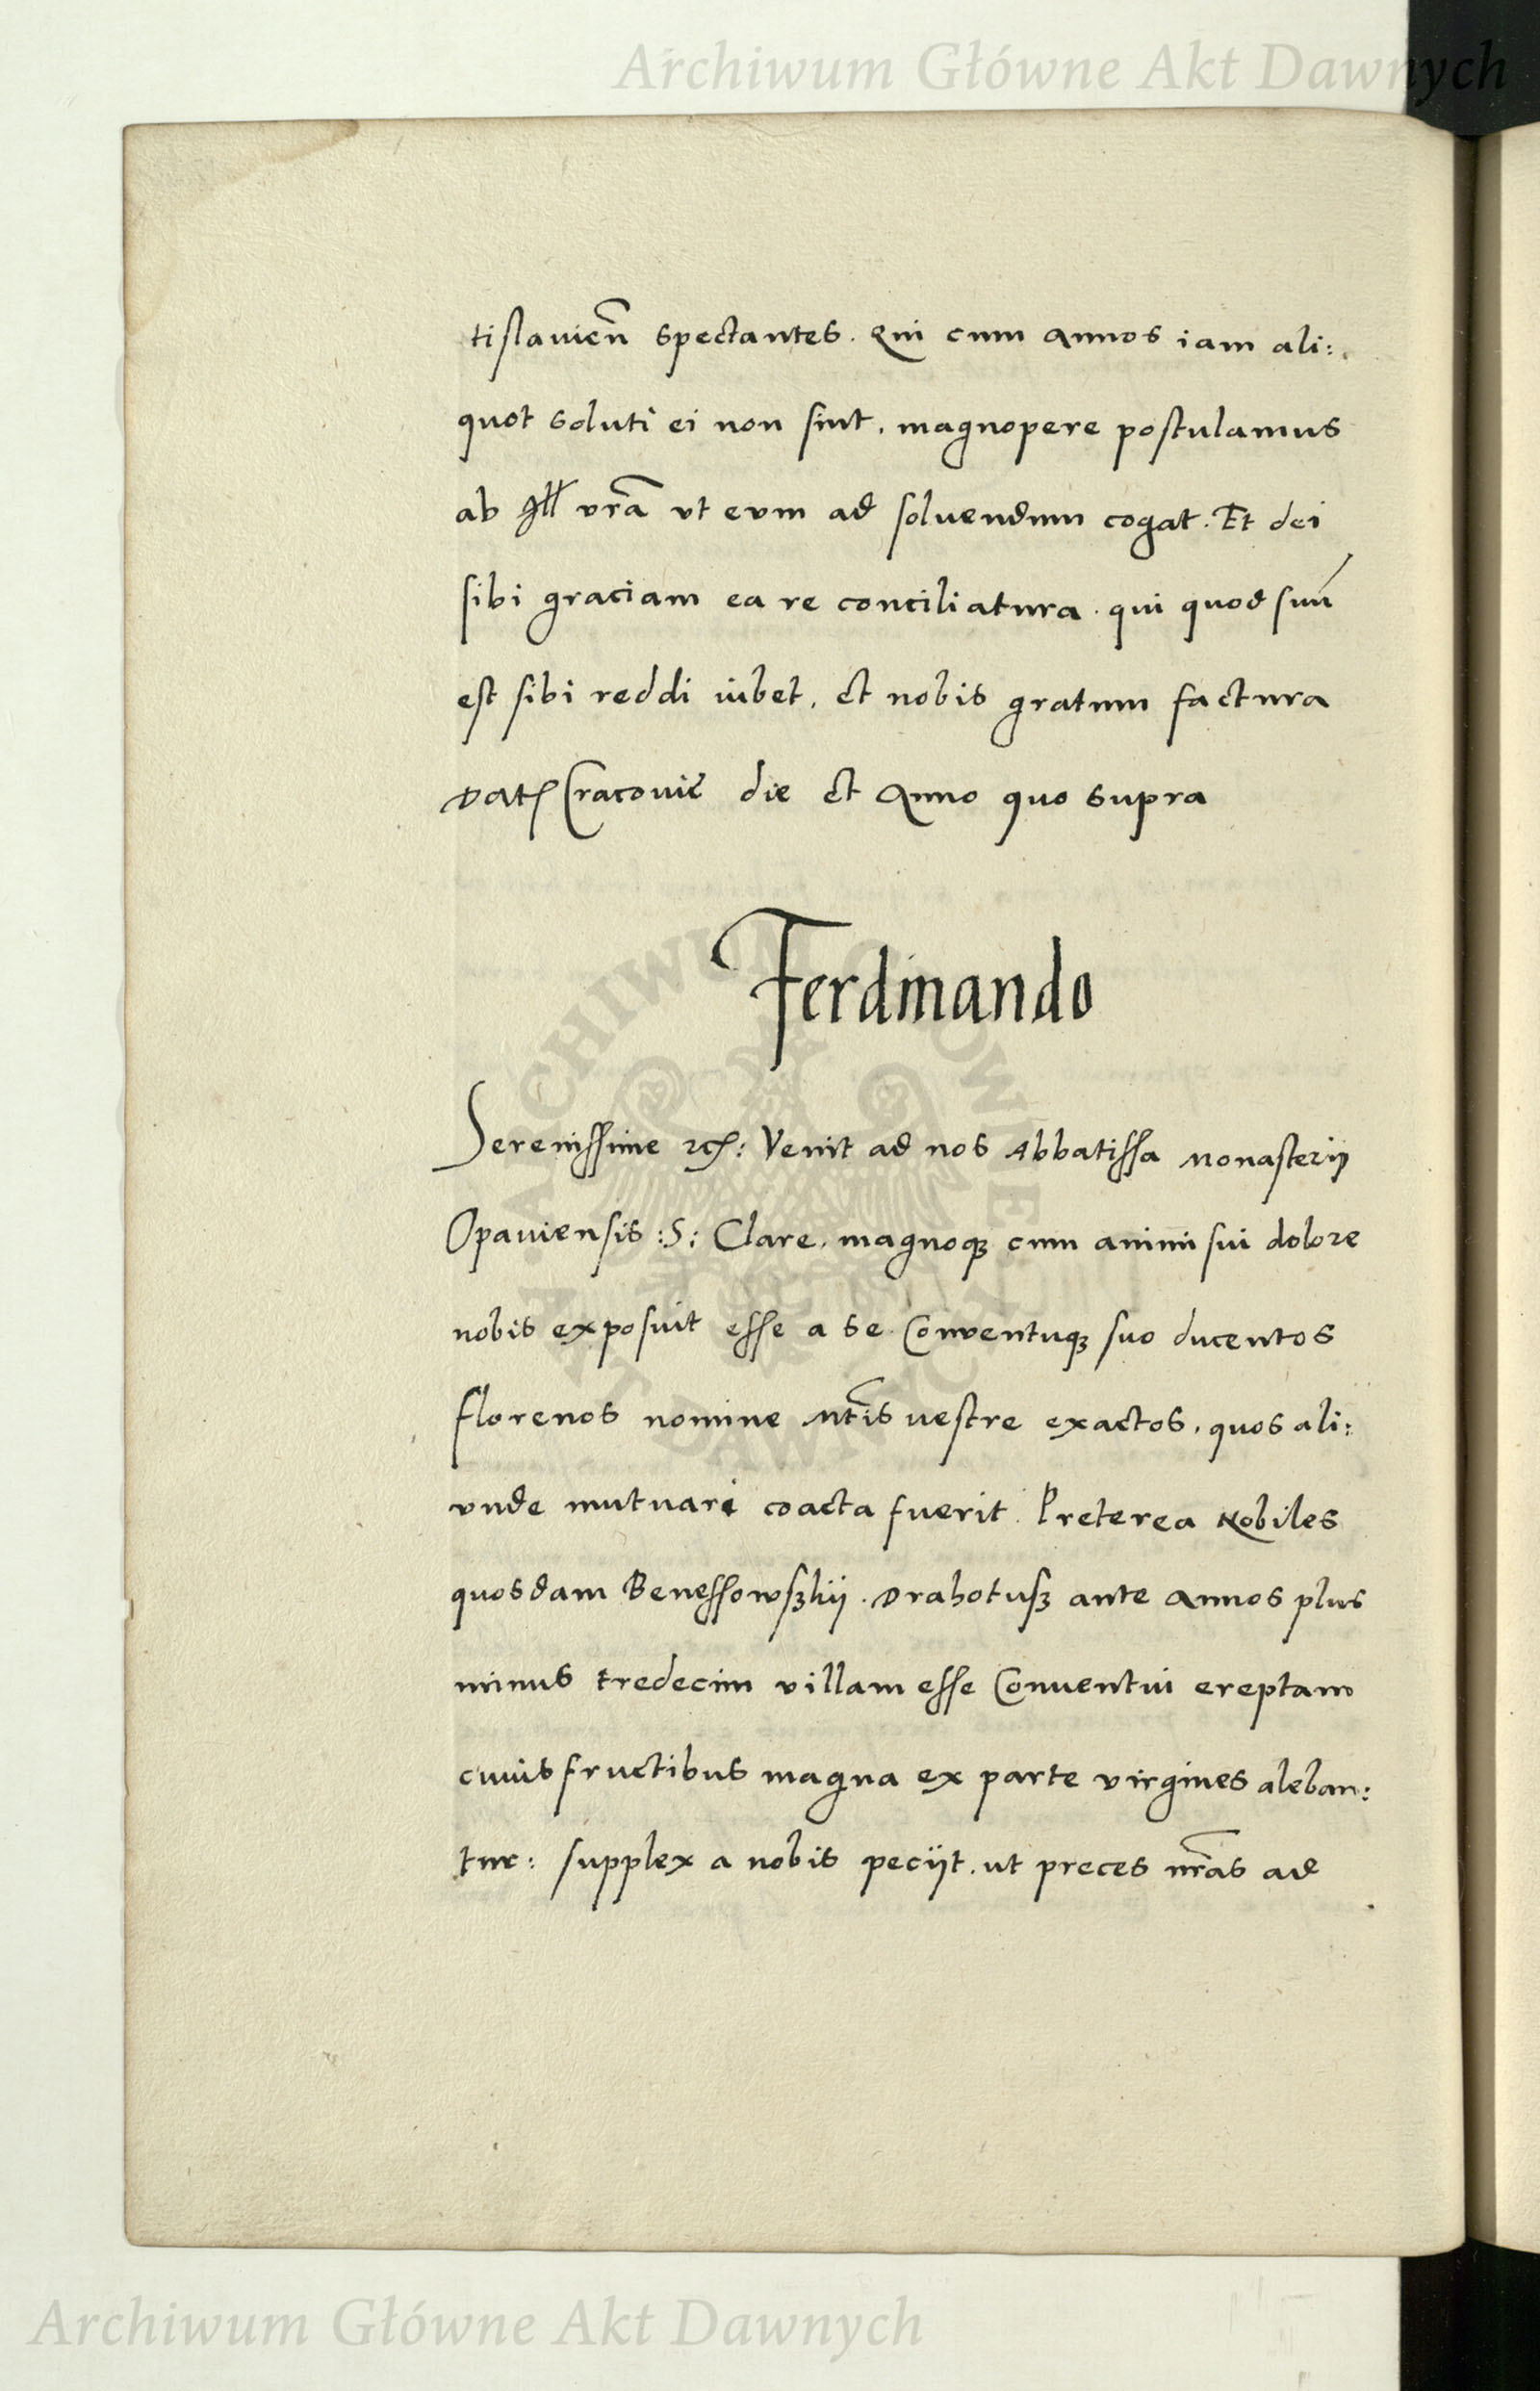 Archiwum Główne Akt Dawnych
tislauien̄ spectantes. Qui cum annos iam ali:
quot soluti ei non sint, magnopere postulamus
ab Ill vrā vt eum ad soluendum cogat. Et dei
sibi graciam ea re conciliatura. qui quod suū
est sibi reddi iubet, et nobis gratum factura
Dat Cracovie die et Anno quo supra
Ferdinando
Serenissime etc: Venit ad nos Abbatissa Monasterij
Opaviensis :S: Clare, magnoqȝ cum animi sui dolore
nobis exposuit esse a se Conventuqȝ suo ducentos
florenos nomine Mtīs vestre exactos, quos ali:
vnde mutuari coacta fuerit. Preterea Nobiles
quosdam Benessowsȝkij. Drahotusȝ ante annos plus
minus tredecim villam esse Conventui ereptam
cuius fructibus magna ex parte virgines aleban:
tur: supplex a nobis peciit. ut preces nrās ad
ARCHIWUM GŁÓWNE AKT DAWNYCH
Archiwum Główne Akt Dawnych